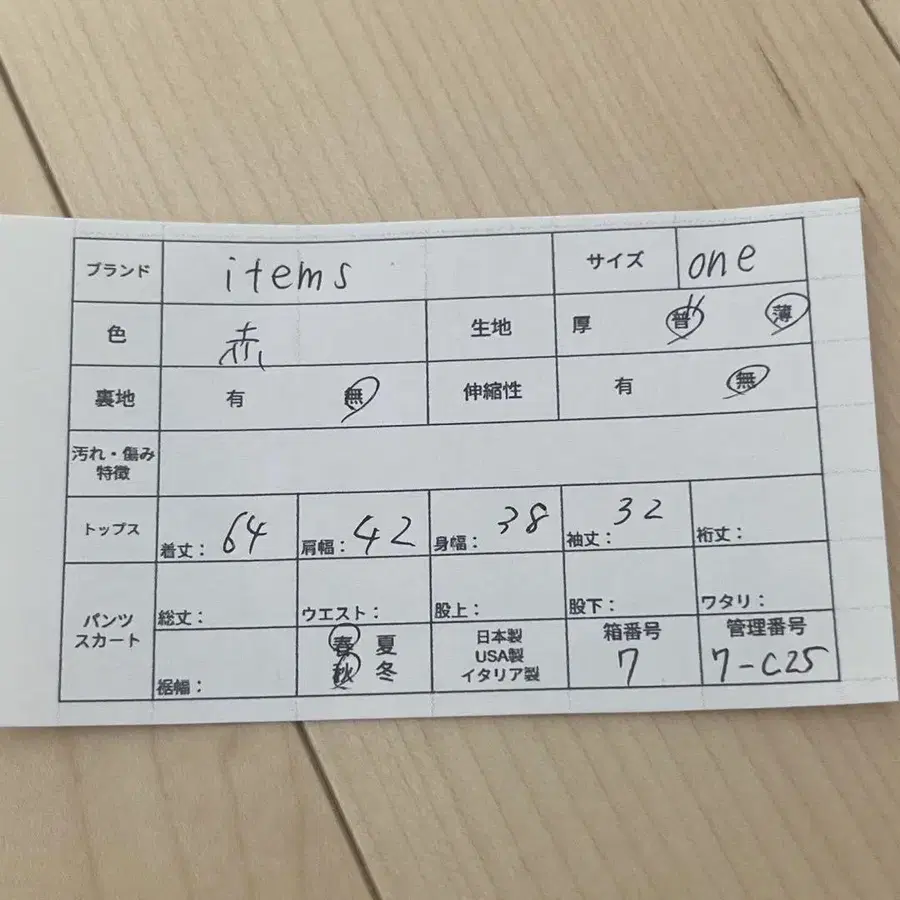 ブランド items サイズ one
色 赤 生地 厚 普 薄
裏地 有 無 伸縮性 有 無
汚れ・傷み
特徴
トップス 着丈: 64 肩幅: 42 身幅: 38 袖丈: 32 裄丈:
パンツ
スカート
総丈: ウエスト: 股上: 股下: ワタリ:
裾幅:
春 夏
秋 冬
日本製
USA製
イタリア製
箱番号
7
管理番号
7-C25